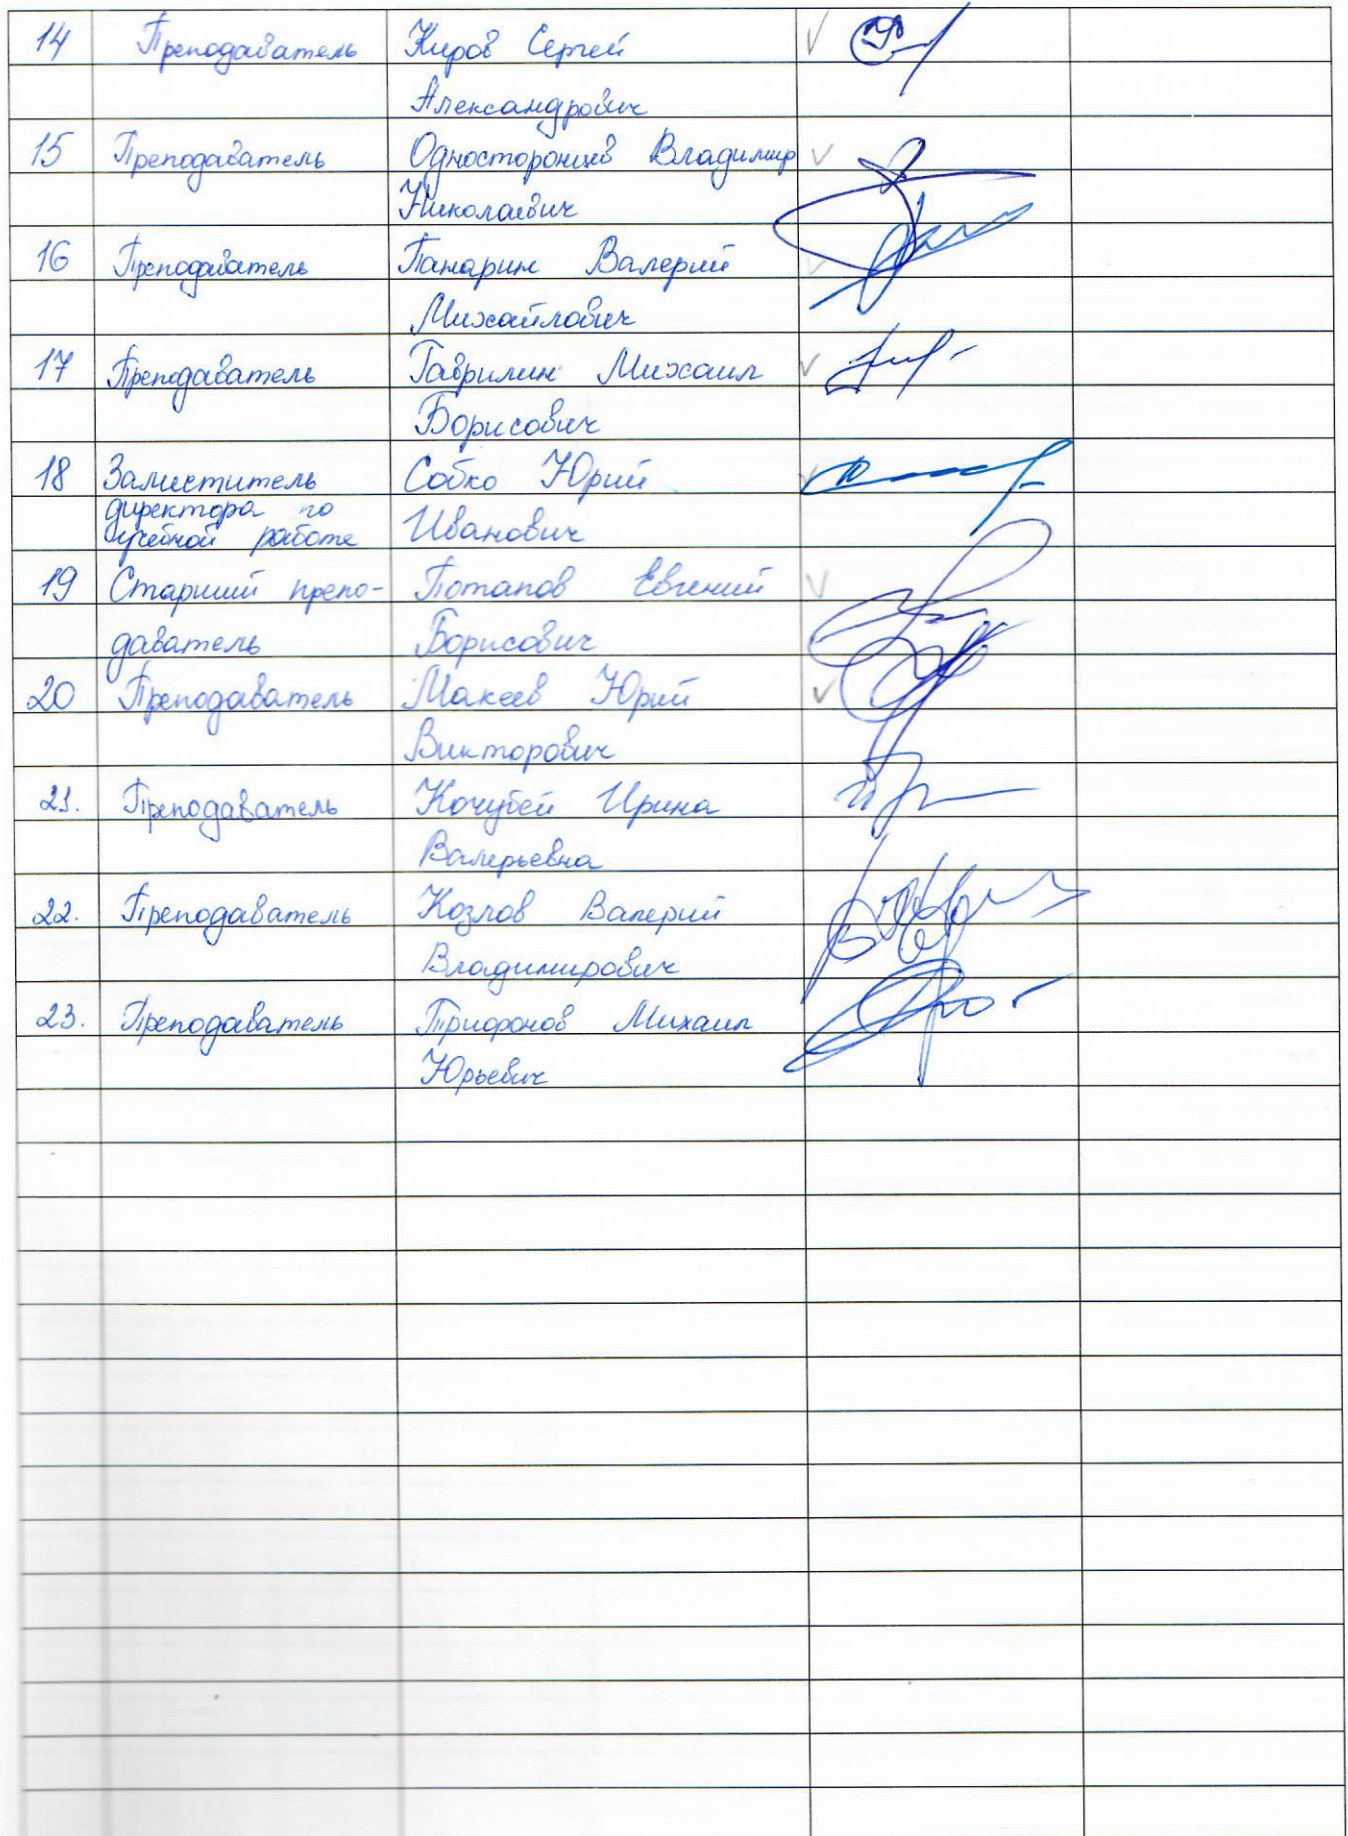 14 Преподаватель Киров Сергей
Александрович
15 Преподаватель Односторонцев Владимир
Николаевич
16 Преподаватель Панарин Валерий
Михайлович
17 Преподаватель Гаврилин Михаил
Борисович
18 Заместитель Собко Юрий
директора по
учебной работе Иванович
19 Старший препо- Потапов Евгений
даватель Борисович
20 Преподаватель Макеев Юрий
Викторович
21. Преподаватель Кочубей Ирина
Валерьевна
22. Преподаватель Козлов Валерий
Владимирович
23. Преподаватель Трифонов Михаил
Юрьевич